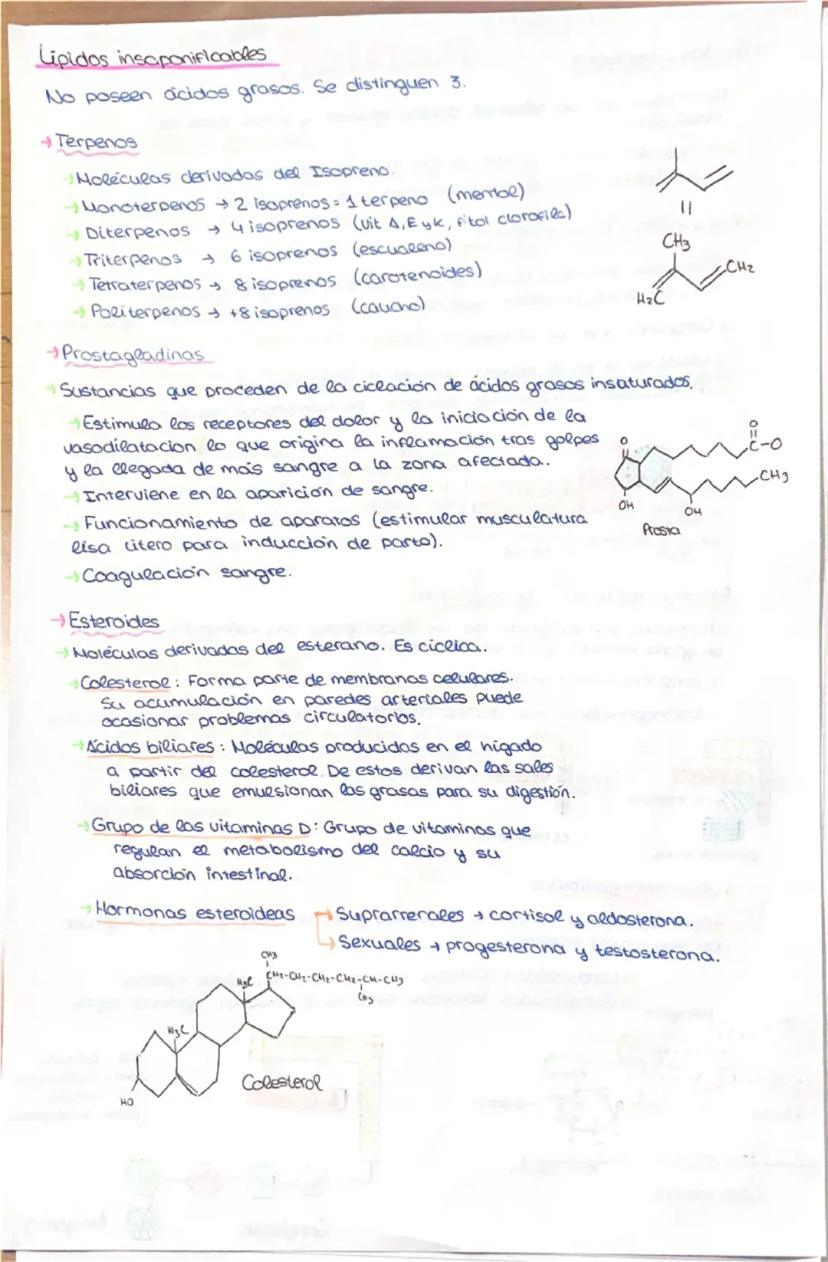 Lípidos insaponificables
No poseen ácidos grasos. Se distinguen 3.
→ Terpenos
→ Moléculas derivadas del Isopreno.
→ Monoterpenos → 2 isoprenos = 1 terpeno (mentol)
→ Diterpenos → 4 isoprenos (vit A, E y K, fitol clorofila)
→ Triterpenos → 6 isoprenos (escualeno)
→ Tetraterpenos → 8 isoprenos (carotenoides)
→ Politerpenos → +8 isoprenos (caucho)
CH3
CH2
H2C
→ Prostagladinas
→ Sustancias que proceden de la ciclación de ácidos grasos insaturados.
→ Estimula los receptores del dolor y la iniciación de la
vasodilatacion lo que origina la inflamación tras golpes
y la llegada de más sangre a la zona afectada.
→ Interviene en la aparición de sangre.
→ Funcionamiento de aparatos (estimular musculatura
lisa útero para inducción de parto).
→ Coagulación sangre.
O
O
C-O
CH3
OH
OH
Prosta
→ Esteroides
→ Moléculas derivadas del esterano. Es cíclica.
→ Colesterol: Forma parte de membranas celulares.
Su acumulación en paredes arteriales puede
ocasionar problemas circulatorios.
→ Ácidos biliares: Moléculas producidas en el hígado
a partir del colesterol. De estos derivan las sales
biliares que emulsionan las grasas para su digestión.
→ Grupo de las vitaminas D: Grupo de vitaminas que
regulan el metabolismo del calcio y su
absorción intestinal.
→ Hormonas esteroideas → Suprarrenales → cortisol y aldosterona.
→ Sexuales → progesterona y testosterona.
CH3
H3C
CH2-CH2-CH2-CH2-CH-CH3
CH3
H3C
HO
Colesterol